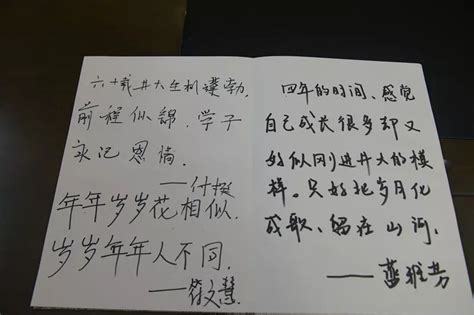 六十载井大生机蓬勃,
前程似锦,学子
永记恩情
——什挺
年年岁岁花相似.
岁岁年年人不同.
——符文慧
四年的时间、感觉
自己成长很多却又
好似刚进井大的模
样。只好把岁月化
成歌、留在山河,
——雅芳